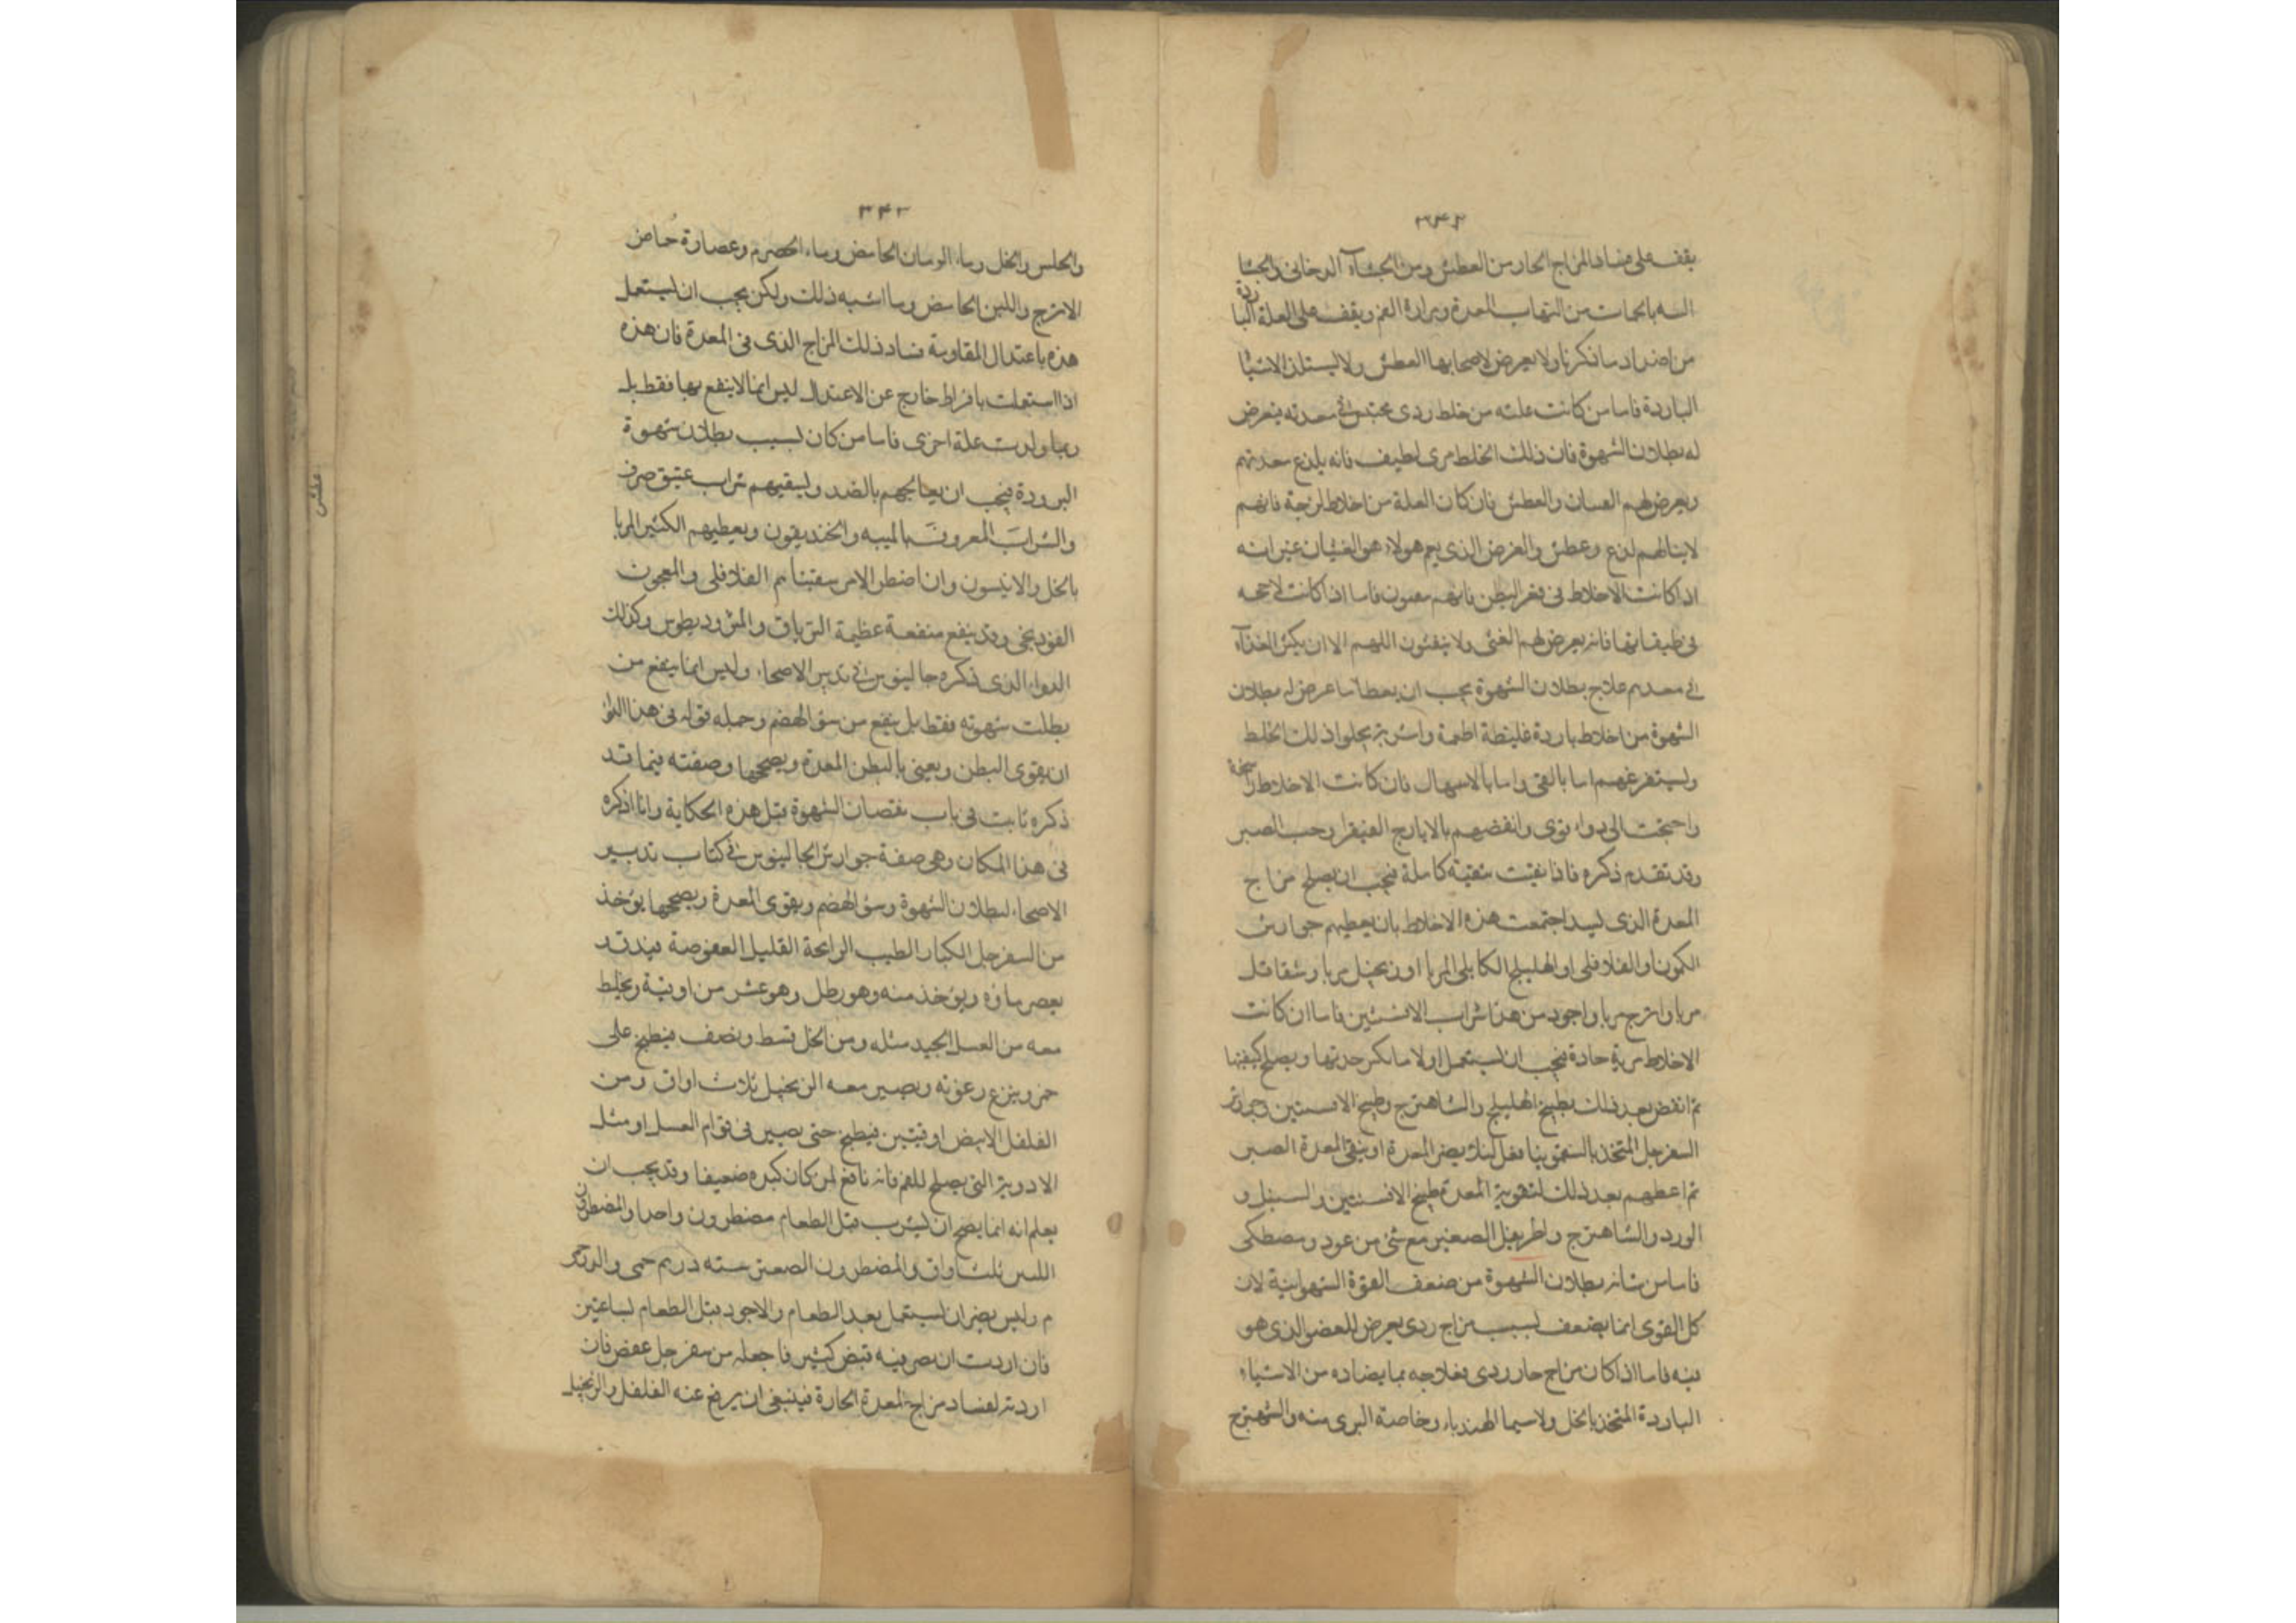 ٣٤٢
يقف على فساد المزاج الحار من العطش ومن الجشاء الدخانى والجشا
من التهاب المعدة ومرارة الفم ويقف على العلة البا
ردة
من اضداد ما ذكرنا ولا يعرض لاصحابها العطش ولا يستلذ الاشيا
الباردة فاما من كانت علته من خلط ردى محتبس فى معدته فيعرض
له بطلان الشهوة فان ذلك الخلط مرى لطيف فانه يلذع معدتهم
ويعرض لهم الغثيان والعطش فان كان العلة من اخلاط لزجة فانهم
لا ينالهم لذع وعطش والعرض الذى يعم هولاء هو الغثيان غير انه
اذا كانت الاخلاط فى قعر البطن فانهم فاما اذا كانت لاحجه
فى طبقاتها فانه يعرض لهم الغثى ولا يقئون اللهم الا ان يكثر الغذآء
فى معدهم علاج بطلان الشهوة يجب ان يعطا ما عرض له بطلان
الشهوة من اخلاط باردة غليظة اطمة واشربة يجلوا ذلك الخلط
وليستفرغهم اما بالقى واما بالاسهال فان كانت الاخلاط را
سخة
واحتجت الى دواء قوى وانفضهم بالايارج الفيقرا وحب الصبر
وقد تقدم ذكره فاذا نقيت تنقية كاملة فيجب ان يصلح مزاج
المعدة الذى اجتمعت هذه الاخلاط بان يعطيهم جوارش
الكمون او الفلافلى او الهليلج الكابلى المربا او زنجبيل مربا وشقاقل
مربا واترج مربا واجود من هذا شراب الافسنتين فاما ان كانت
الاخلاط مرية حادة فيجب ان يستعمل اولا ما يكسر حدتها ويصلح كيفيتها
ثم انفض بعد ذلك بطبيخ الهليلج والشاهترج وطبيخ الافسنتين وجوارش
السفرجل المتخذ بالسقمونيا يضر المعدة او ينقى المعدة الصبر
ثم اعطهم بعد ذلك لتقوية المعدة طبيخ الافسنتين والسنبل و
الورد والشاهترج واطريفل الصغير مع شئ من عود ومصطكى
فاما من شانه بطلان الشهوة من ضعف القوة الشهوانية لان
كل القوى انما يضعف لسبب مزاج ردى يعرض للعضو الذى هو
فيه فاما اذا كان مزاج حار ردى فعلاجه بما يضاده من الاشياء
الباردة المتخذ بالخل ولا سيما الهندباء وخاصة البرى منه والشهترج
٣٤٣
والخس والخل وماء الرمان الحامض وماء الحصرم وعصارة حماض
الاترج واللبن الحامض وما اشبه ذلك ولكن يجب ان يستعمل
هذه باعتدال المقاومة فساد ذلك المزاج الذى فى المعدة فان هذه
اذا استعملت بافراط خارج عن الاعتدال ليس انما لا ينفع بها فقط بل
ربما ولدت علة اخرى فاما من كان لسبب بطلان شهوة
البرودة فيجب ان يعالجهم بالضد ويسقيهم شراب عتيق صرف
والشراب المعروف بالميبه والخنديقون ويعطيهم الكثير المربا
بالخل والانيسون وان اضطر الامر سقيناهم الفلافلى والمعجون
الفوذنجى وقد ينفع منفعة عظيمة الترياق والمثروديطوس وكذلك
الدواء الذى ذكره جالينوس فى تدبير الاصحاء وليس انما ينفع من
بطلت شهوته فقط بل ينفع من سؤ الهضم وجمله قوله فى هذا الدوا
ان يقوى البطن ويعنى بالبطن المعدة ويصححها وصفته فيما قد
ذكره ثابت فى باب نقصان الشهوة قبل هذه الحكاية وانا اذكره
فى هذا المكان وهى صفة جوارش الجالينوس فى كتاب تدبير
الاصحاء لبطلان الشهوة وسؤ الهضم ويقوى المعدة ويصححها يؤخذ
من السفرجل الكبار الطيب الرائحة القليل العفوصة فيدق
يعصر ماؤه ويؤخذ منه وهو رطل وهو عشر من اوقية ويخلط
معه من العسل الجيد مثله ومن الخل قسط ونصف فيطبخ على
جمر وينزع رغوته ويصير معه الزنجبيل ثلاث اواق ومن
الفلفل الابيض اوقيتين فيطبخ حتى يصير فى قوام العسل او مثل
الادوية التى يصلح للفم فانه نافع لمن كان كبده ضعيفا وقد يجب ان
يعلم انه انما يصح ان يشرب قبل الطعام مضطرون واحدا والمضطرو
ن
ثلث اواق والمضطرون الصغير ستة دراهم
م وليس يضر ان يستعمل بعد الطعام والاجود قبل الطعام بساعتين
فان اردت ان يصر فيه قبض كثير فاجعله من سفرجل عفص فان
اردته لفساد مزاج المعدة الحارة فينبغى ان يرفع عنه الفلفل والزنجبيل